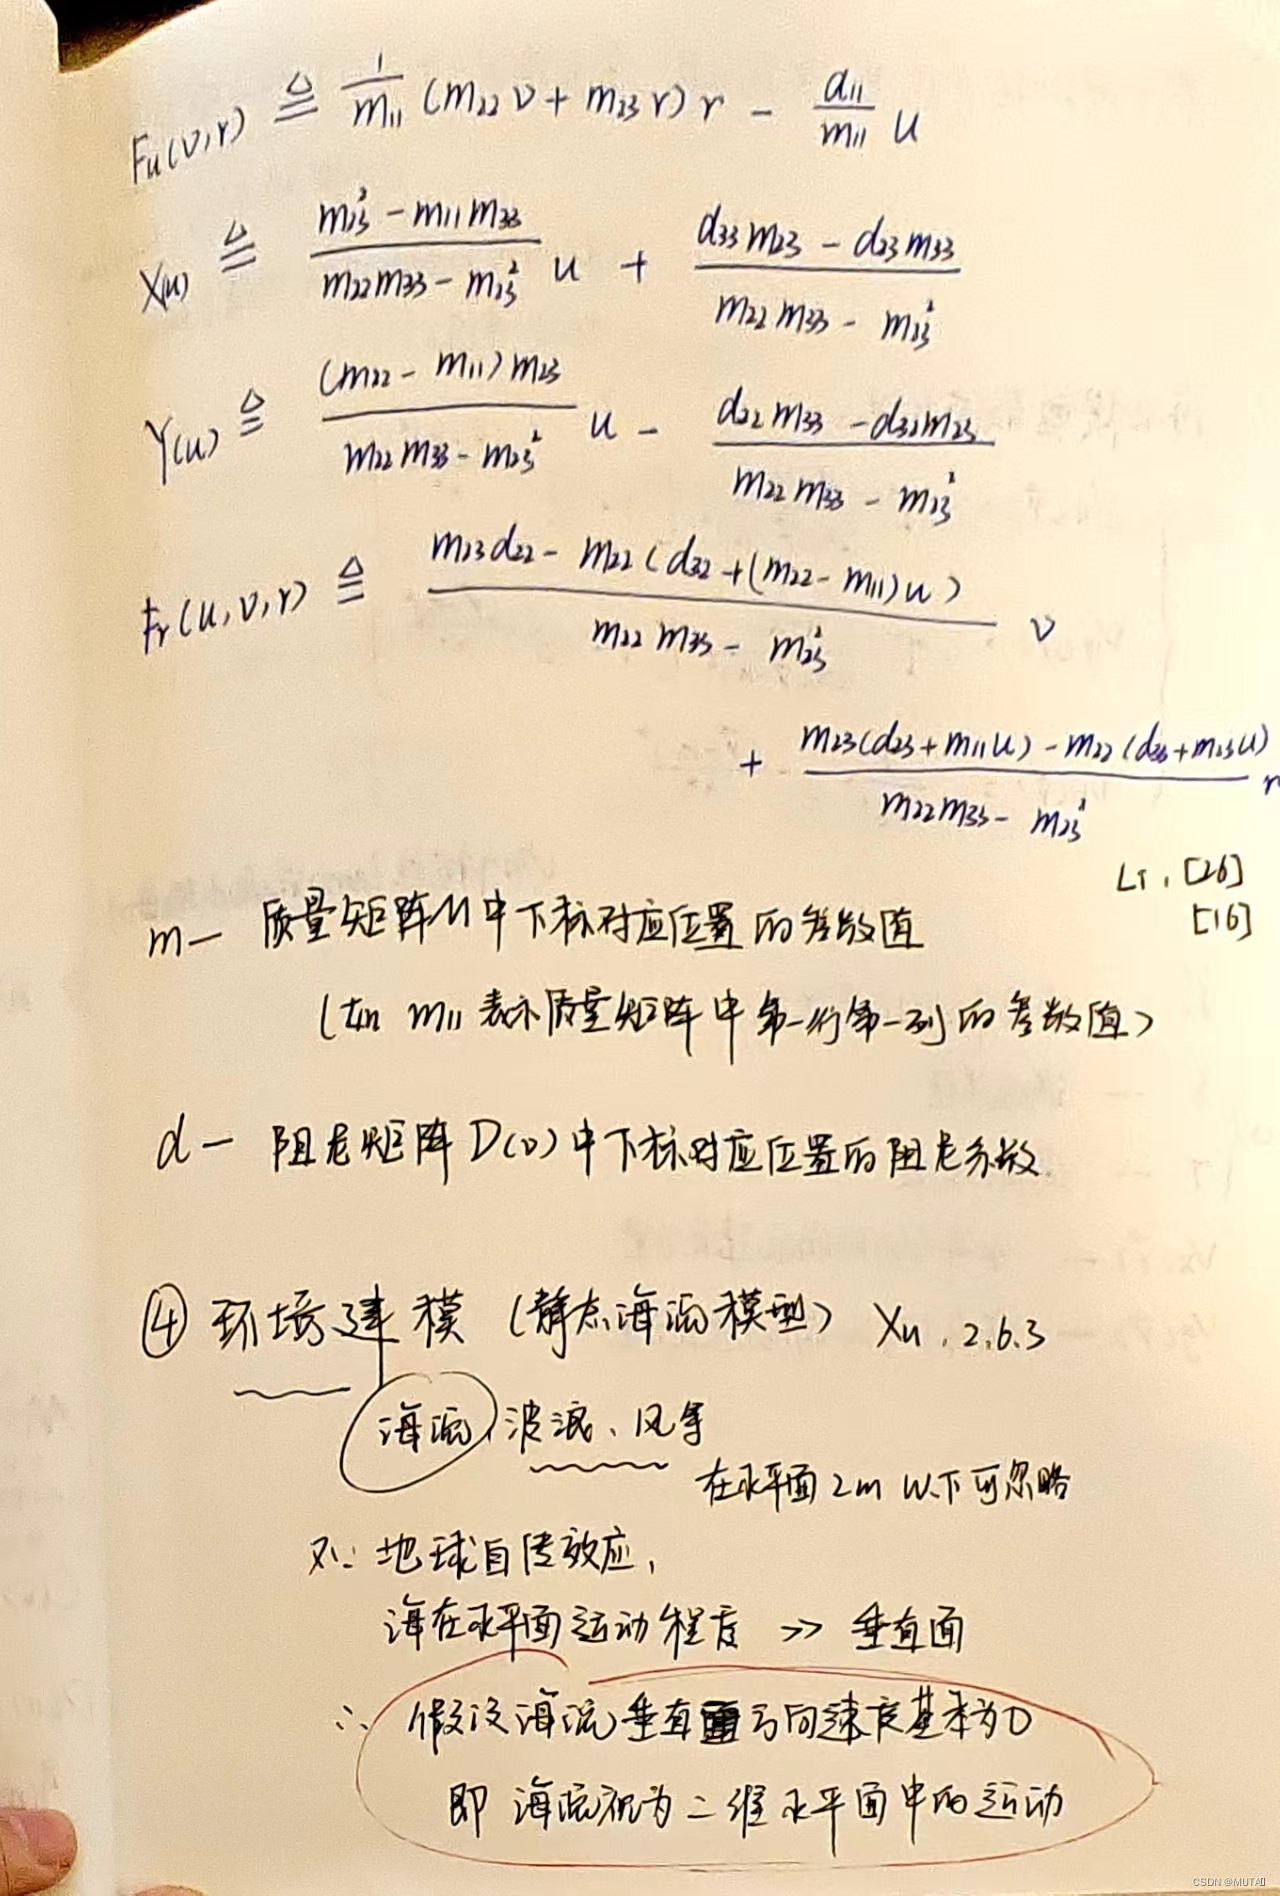 Fu(v,r) ≜ 1/m11 (m22 v + m23 r) r - d11/m11 u
X(u) ≜ (m23² - m11m33)/(m22m33 - m23²) u + (d33m23 - d23m33)/(m22m33 - m23²)
Y(u) ≜ ((m22 - m11)m23)/(m22m33 - m23²) u - (d22m33 - d32m23)/(m22m33 - m23²)
Fr(u,v,r) ≜ (m23d22 - m22(d32+(m22-m11)u))/(m22m33 - m23²) v
+ (m23(d23+m11u) - m22(d33+m23u))/(m22m33 - m23²) r
LT, [26]
[16]
m— 质量矩阵M中下标对应位置的参数值
(如 m11 表示质量矩阵中第一行第一列的参数值)
d— 阻尼矩阵D(v)中下标对应位置的阻尼系数
④ 环境建模 (静态海流模型) Xu, 2.6.3
海流、波浪、风等
在水平面2m以下可忽略
又∵ 地球自转效应,
海在水平面运动程度 >> 垂直面
∴ 假设海流垂直面方向速度基本为0
即 海流视为二维水平面中的运动
CSDN @MUTA